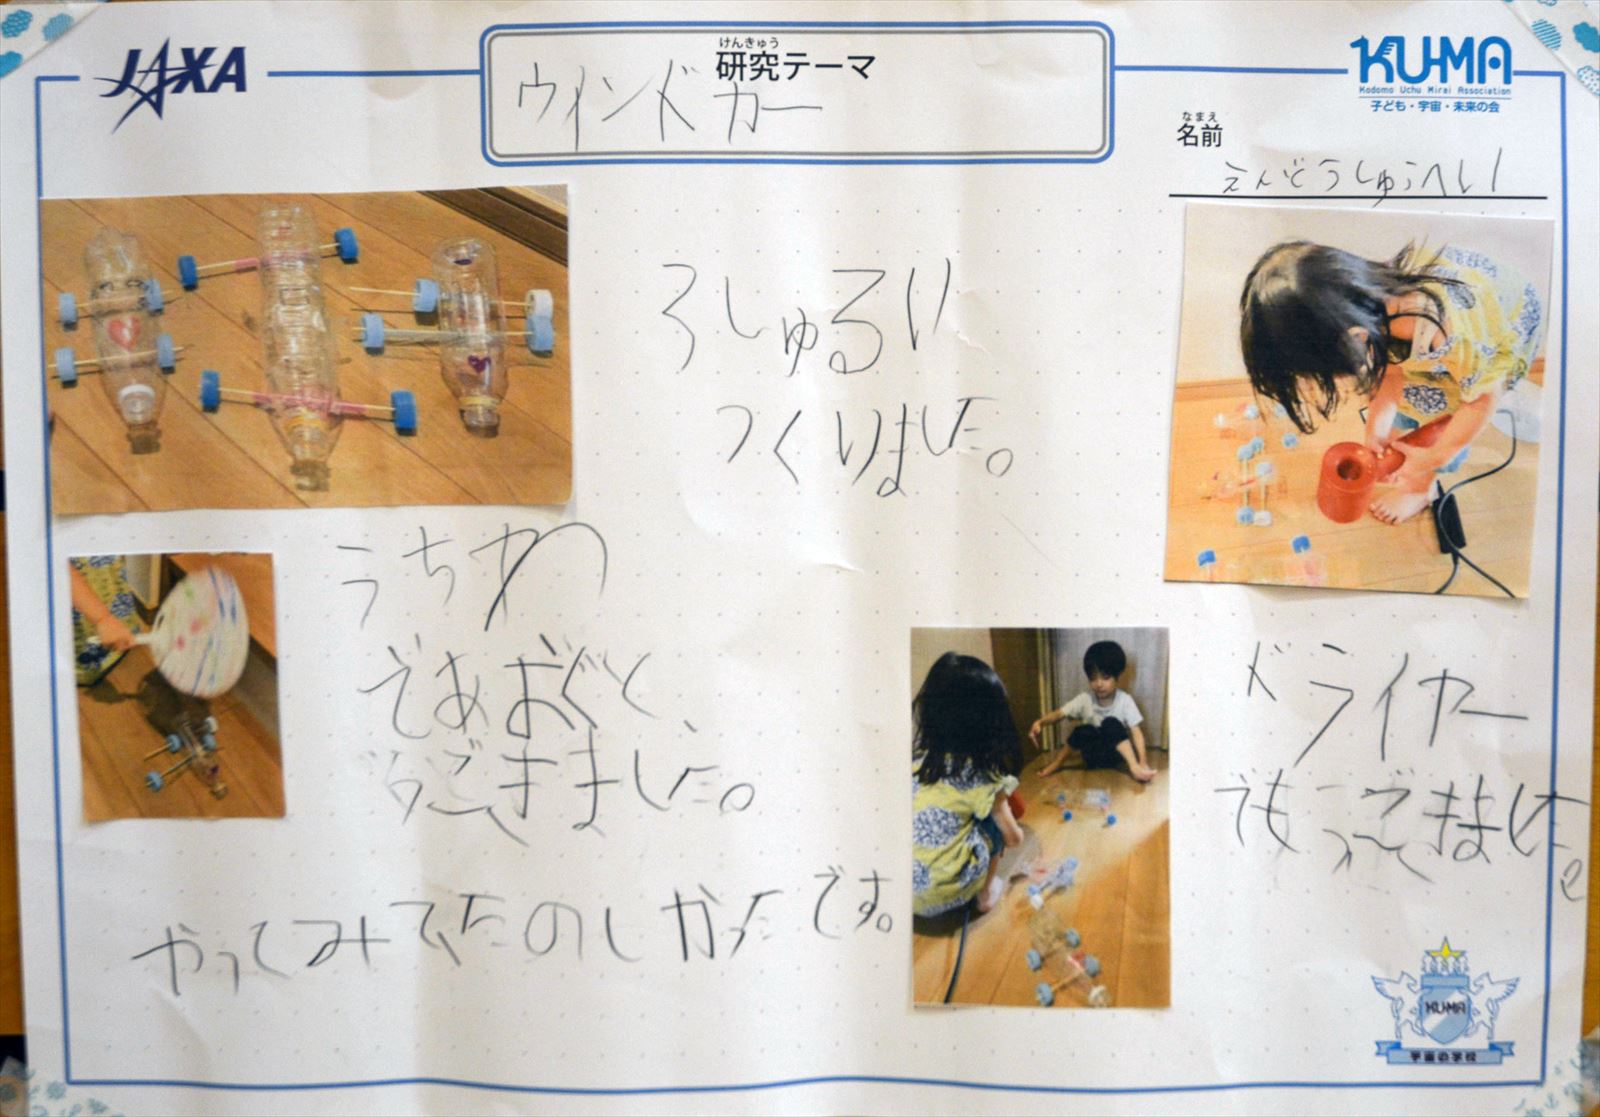 JAXA
けんきゅう
研究テーマ
ウインドカー
KU-MA
Kodomo Uchu Mirai Association
子ども・宇宙・未来の会
なまえ
名前
えんどうしゅうへい
3しゅるい
つくりました。
うちわ
であおぐと、
うごきました。
ドライヤー
でもうごきました。
やってみてたのしかったです。
KU-MA